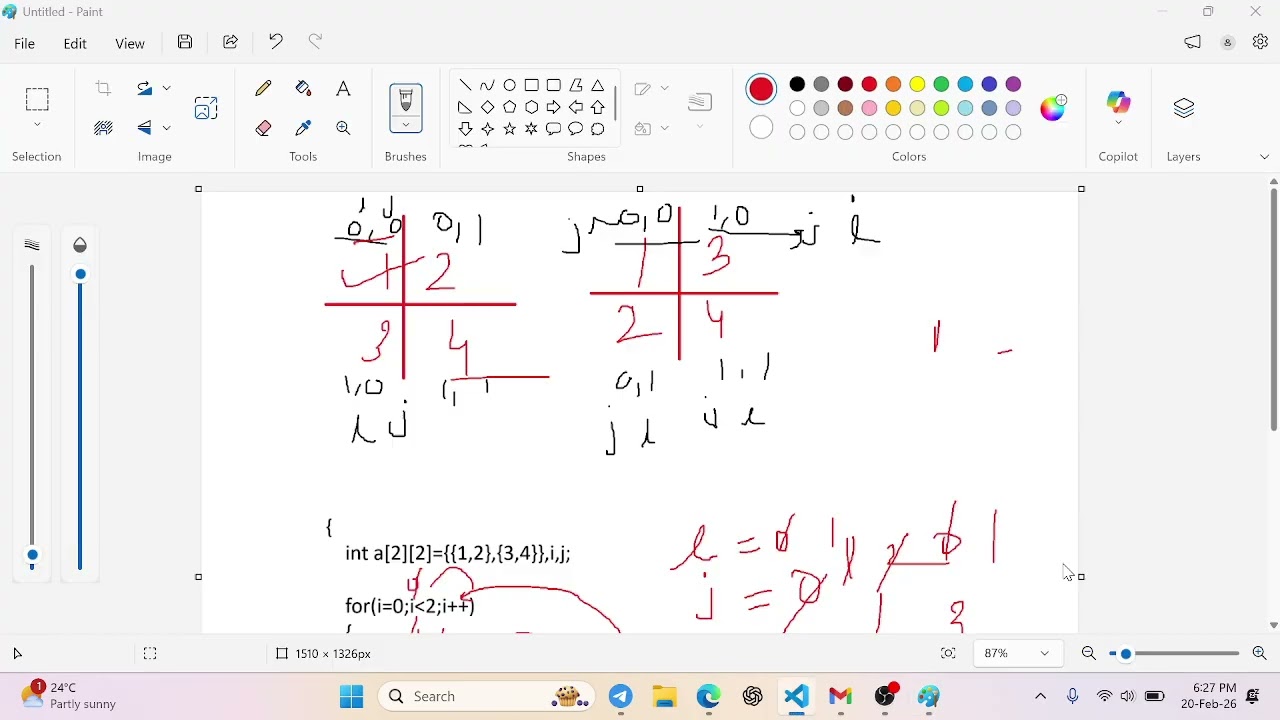 Untitled - Paint
File Edit View
Selection Image Tools Brushes Shapes Colors Copilot Layers
i j
0,0 0,1 j 0,0 1,0 j i
1 2 1 3
3 4 2 4
1,0 1,1 0,1 1,1
i j j i j i
{
int a[2][2]={{1,2},{3,4}},i,j;
i = 0 1 0 1
0
for(i=0;i<2;i++)
j = 0
{
1510 × 1326px 87%
1
24°C
Partly sunny
Search
6:27 PM
20-Feb-26